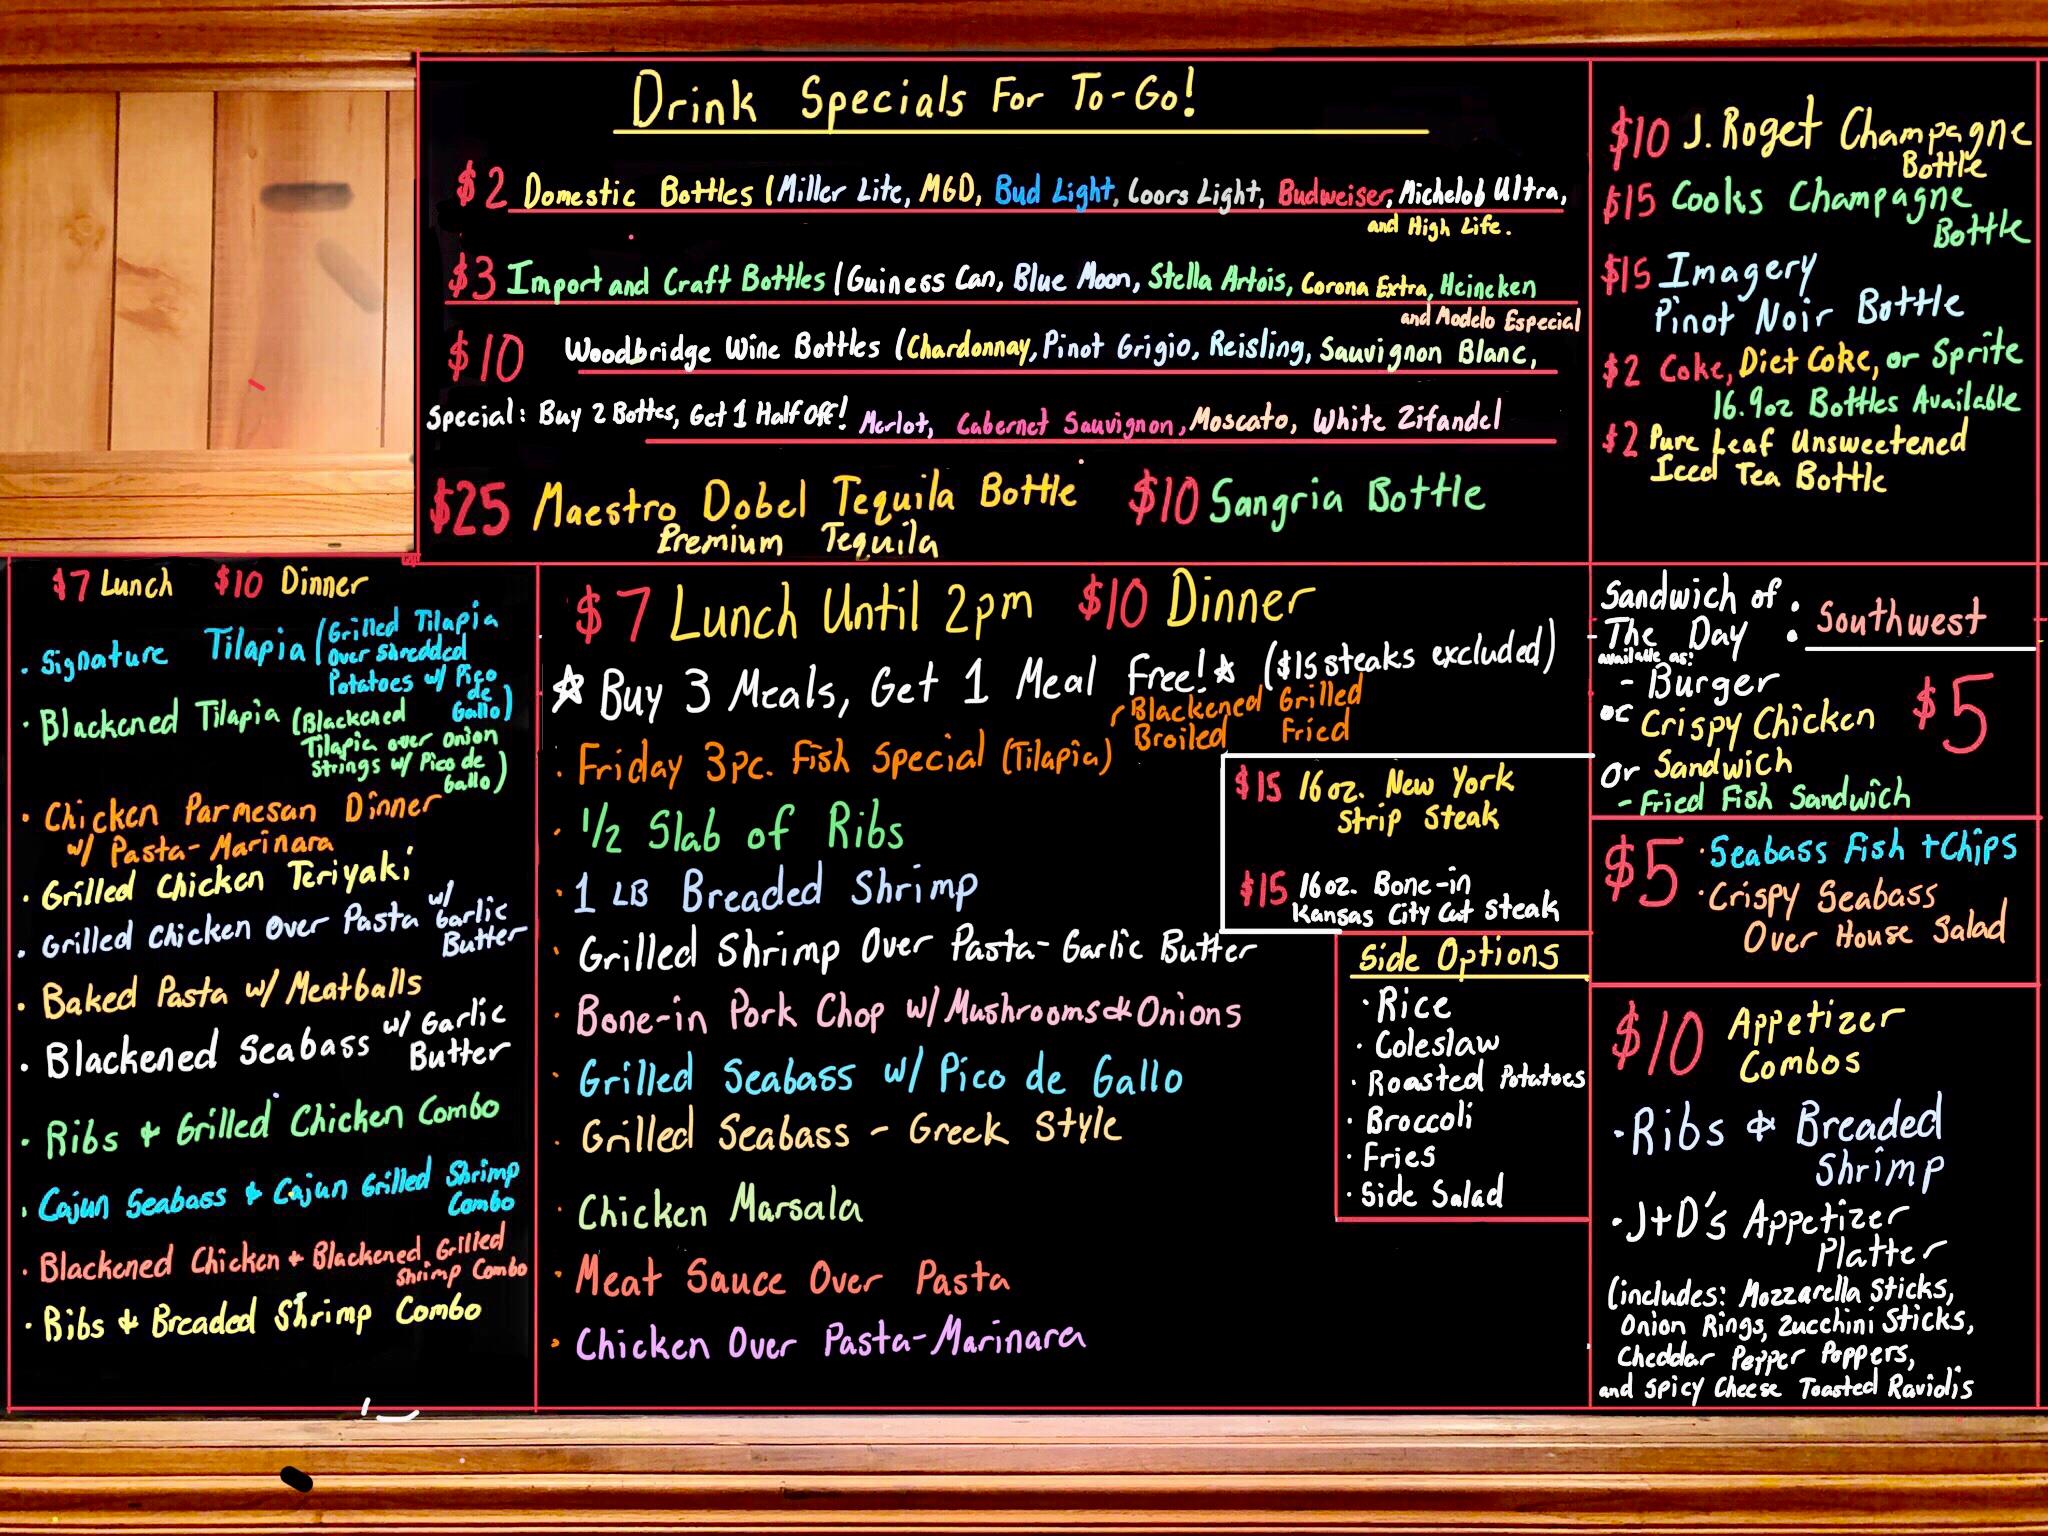 Drink Specials For To-Go!
$2 Domestic Bottles (Miller Lite, MGD, Bud Light, Coors Light, Budweiser, Michelob Ultra,
and High Life.
$3 Import and Craft Bottles (Guiness Can, Blue Moon, Stella Artois, Corona Extra, Heineken
and Modelo Especial
$10 Woodbridge Wine Bottles (Chardonnay, Pinot Grigio, Reisling, Sauvignon Blanc,
Special: Buy 2 Bottes, Get 1 Half Off! Merlot, Cabernet Sauvignon, Moscato, White Zifandel
$25 Maestro Dobel Tequila Bottle $10 Sangria Bottle
Premium Tequila
$10 J. Roget Champagne
Bottle
$15 Cooks Champagne
Bottle
$15 Imagery
Pinot Noir Bottle
$2 Coke, Diet Coke, or Sprite
16.9oz Bottles Available
$2 Pure Leaf Unsweetened
Iced Tea Bottle
$7 Lunch $10 Dinner
· Signature Tilapia (Grilled Tilapia
over Shredded
Potatoes w/ Pico
de
Gallo)
· Blackened Tilapia (Blackened
Tilapia over Onion
Strings w/ Pico de
Gallo)
· Chicken Parmesan Dinner
w/ Pasta-Marinara
· Grilled Chicken Teriyaki
· Grilled Chicken Over Pasta w/
Garlic
Butter
· Baked Pasta w/ Meatballs
· Blackened Seabass w/ Garlic
Butter
· Ribs & Grilled Chicken Combo
· Cajun Seabass & Cajun Grilled Shrimp
Combo
· Blackened Chicken & Blackened Grilled
Shrimp Combo
· Ribs & Breaded Shrimp Combo
$7 Lunch Until 2pm $10 Dinner
☆ Buy 3 Meals, Get 1 Meal Free! ☆ ($15 steaks excluded)
· Friday 3pc. Fish Special (Tilapia)
Blackened Grilled
Broiled Fried
· 1/2 Slab of Ribs
· 1 LB Breaded Shrimp
· Grilled Shrimp Over Pasta-Garlic Butter
· Bone-in Pork Chop w/ Mushrooms & Onions
· Grilled Seabass w/ Pico de Gallo
· Grilled Seabass - Greek Style
· Chicken Marsala
· Meat Sauce Over Pasta
· Chicken Over Pasta-Marinara
$15 16oz. New York
Strip Steak
$15 16oz. Bone-in
Kansas City Cut Steak
Side Options
· Rice
· Coleslaw
· Roasted Potatoes
· Broccoli
· Fries
· Side Salad
Sandwich of
The Day : Southwest
available as:
- Burger
or Crispy Chicken $5
Or Sandwich
- Fried Fish Sandwich
$5 · Seabass Fish + Chips
· Crispy Seabass
Over House Salad
$10 Appetizer
Combos
· Ribs & Breaded
Shrimp
· J+D's Appetizer
Platter
(includes: Mozzarella Sticks,
Onion Rings, Zucchini Sticks,
Cheddar Pepper Poppers,
and Spicy Cheese Toasted Raviolis